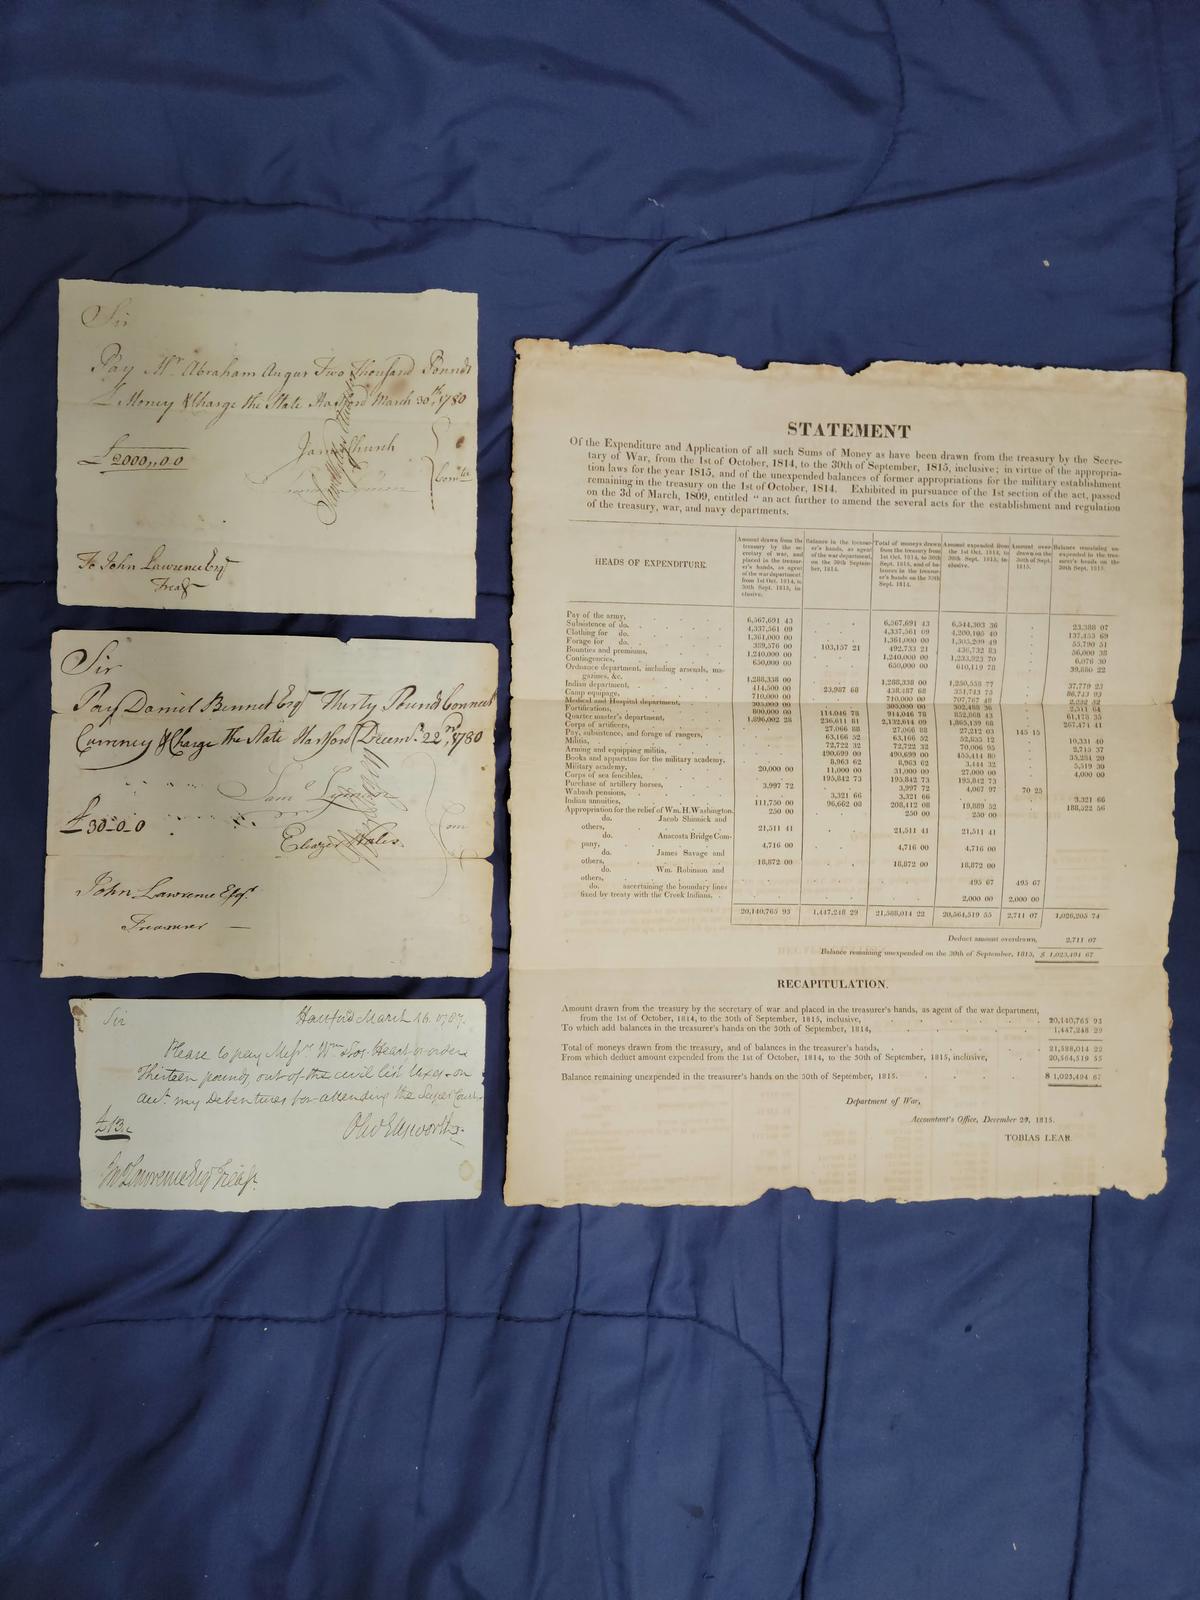 Sir
Pay Mr Abraham Angus Two Thousand Pounds
L Money & Charge the State Hartford March 30th, 1780
£2000,,0.0
James Church
Comtee
To John Lawrence Esqr
Treasr
Sir
Pay Daniel Bennet Esqr Thirty Pounds Connect
Currency & Charge the State Hartford Decemr. 22nd, 1780
Saml Lyman
£30-0-0
Com
Eleazer Wales
John Lawrence Esqr.
Treasurer
Sir Hartford March 16. 1787.
Please to pay Messrs Wm & Hart or order
Thirteen pounds, out of the civil list taxes - on
my Debentures for attending the Super Court
£13..
Olivr Ellsworth
Jno Lawrence Esqr Treasr.
STATEMENT
Of the Expenditure and Application of all such Sums of Money as have been drawn from the treasury by the Secre-
tary of War, from the 1st of October, 1814, to the 30th of September, 1815, inclusive; in virtue of the appropria-
tion laws for the year 1815, and of the unexpended balances of former appropriations for the military establishment
remaining in the treasury on the 1st of October, 1814. Exhibited in pursuance of the 1st section of the act, passed
on the 3d of March, 1809, entitled “ an act further to amend the several acts for the establishment and regulation
of the treasury, war, and navy departments.
HEADS OF EXPENDITURE.
Amount drawn from the treasury by the secretary of war, and placed in the treasurer's hands, as agent of the war department from 1st Oct. 1814, to 30th Sept. 1815, inclusive.
Balance in the treasurer's hands, as agent of the war department, on the 30th September, 1814.
Total of moneys drawn from the treasury from 1st Oct. 1814, to 30th Sept. 1815, and of balances in the treasurer's hands on the 30th Sept. 1814.
Amount expended from the 1st Oct. 1814, to 30th Sept. 1815, inclusive.
Amount overdrawn on the 30th of Sept. 1815.
Balance remaining unexpended in the treasurer's hands on the 30th Sept. 1815.
Pay of the army, 6,567,691 43 6,567,691 43 6,544,303 36 23,388 07
Subsistence of do. 4,337,561 09 4,337,561 09 4,200,105 40 137,455 69
Clothing for do. 1,361,000 00 1,361,000 00 1,305,209 49 55,790 51
Forage for do. 389,576 00 103,157 21 492,733 21 436,732 83 56,000 38
Bounties and premiums, 1,240,000 00 1,240,000 00 1,233,923 70 6,076 30
Contingencies, 650,000 00 650,000 00 610,119 78 39,880 22
Ordnance department, including arsenals, ma-
gazines, &c. 1,288,338 00 1,288,338 00 1,250,558 77 37,779 23
Indian department, 414,500 00 23,987 68 438,487 68 351,743 75 86,743 93
Camp equipage, 710,000 00 710,000 00 707,767 48 2,232 52
Medical and Hospital department, 305,000 00 305,000 00 302,488 36 2,511 64
Fortifications, 800,000 00 114,046 78 914,046 78 852,868 43 61,178 35
Quarter master's department, 1,896,002 28 236,611 81 2,132,614 09 1,865,139 68 267,474 41
Corps of artificers, 27,066 88 27,066 88 27,212 03 145 15
Pay, subsistence, and forage of rangers, 63,166 52 63,166 52 52,835 12 10,331 40
Militia, 72,722 32 72,722 32 70,006 95 2,715 37
Arming and equipping militia, 490,699 00 490,699 00 455,414 80 35,284 20
Books and apparatus for the military academy, 8,963 62 8,963 62 3,444 32 5,519 30
Military academy, 20,000 00 11,000 00 31,000 00 27,000 00 4,000 00
Corps of sea fencibles, 195,842 73 195,842 73 195,842 73
Purchase of artillery horses, 3,997 72 3,997 72 4,067 97 70 25
Wabash pensions, 3,321 66 3,321 66 3,321 66
Indian annuities, 111,750 00 96,662 08 208,412 08 19,889 52 188,522 56
Appropriation for the relief of Wm. H. Washington. 250 00 250 00 250 00
do. Jacob Shinnick and
others, 21,511 41 21,511 41 21,511 41
do. Anacosta Bridge Com-
pany, 4,716 00 4,716 00 4,716 00
do. James Savage and
others, 18,872 00 18,872 00 18,872 00
do. Wm. Robinson and
others, 495 67 495 67
do. ascertaining the boundary lines
fixed by treaty with the Creek Indians. 2,000 00 2,000 00
20,140,765 93 1,447,248 29 21,588,014 22 20,564,519 55 2,711 07 1,026,205 74
Deduct amount overdrawn, 2,711 07
Balance remaining unexpended on the 30th of September, 1815, $ 1,023,494 67
RECAPITULATION.
Amount drawn from the treasury by the secretary of war and placed in the treasurer's hands, as agent of the war department,
from the 1st of October, 1814, to the 30th of September, 1815, inclusive, 20,140,765 93
To which add balances in the treasurer's hands on the 30th of September, 1814, 1,447,248 29
Total of moneys drawn from the treasury, and of balances in the treasurer's hands, 21,588,014 22
From which deduct amount expended from the 1st of October, 1814, to the 30th of September, 1815, inclusive, 20,564,519 55
Balance remaining unexpended in the treasurer's hands on the 30th of September, 1815. $ 1,023,494 67
Department of War,
Accountant's Office, December 29, 1815.
TOBIAS LEAR.